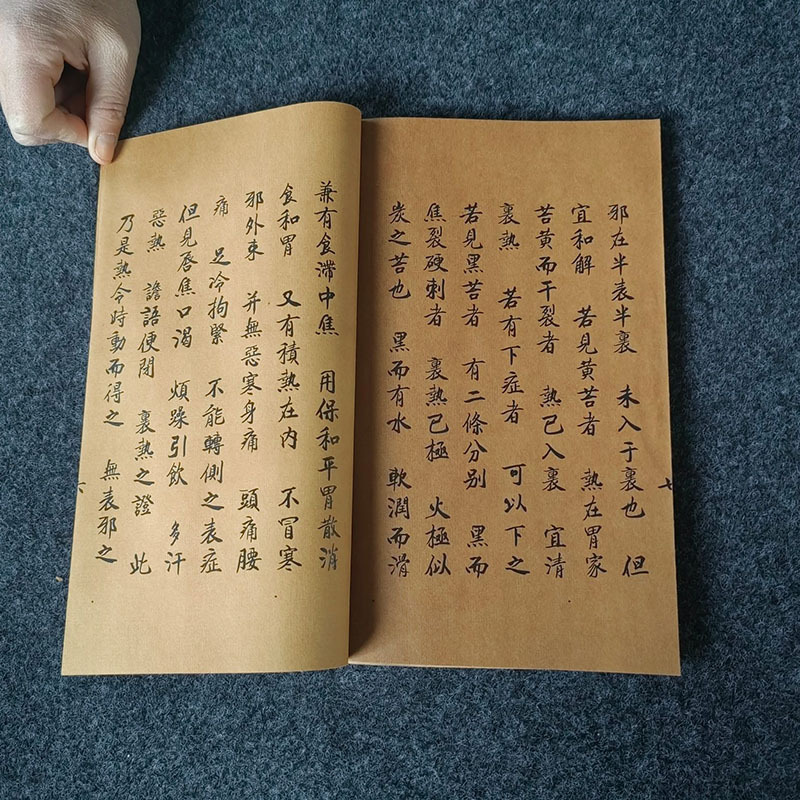 邪在半表半裏　未入于裏也　但
宜和解　若見黄苦者　熱在胃家
苦黄而干裂者　熱已入裏　宜清
裏熱　若有下症者　可以下之
若見黑苦者　有二條分别　黑而
焦裂硬刺者　裏熱已極　火極似
炭之苦也　黑而有水　軟潤而滑
七
兼有食滯中焦　用保和平胃散消
食和胃　又有積熱在内　不冒寒
邪外束　并無惡寒身痛　頭痛腰
痛　足冷拘緊　不能轉側之表症
但見唇焦口渴　煩躁引飲　多汗
惡熱　譫語便閉　裏熱之證　此
乃是熱令時動而得之　無表邪之